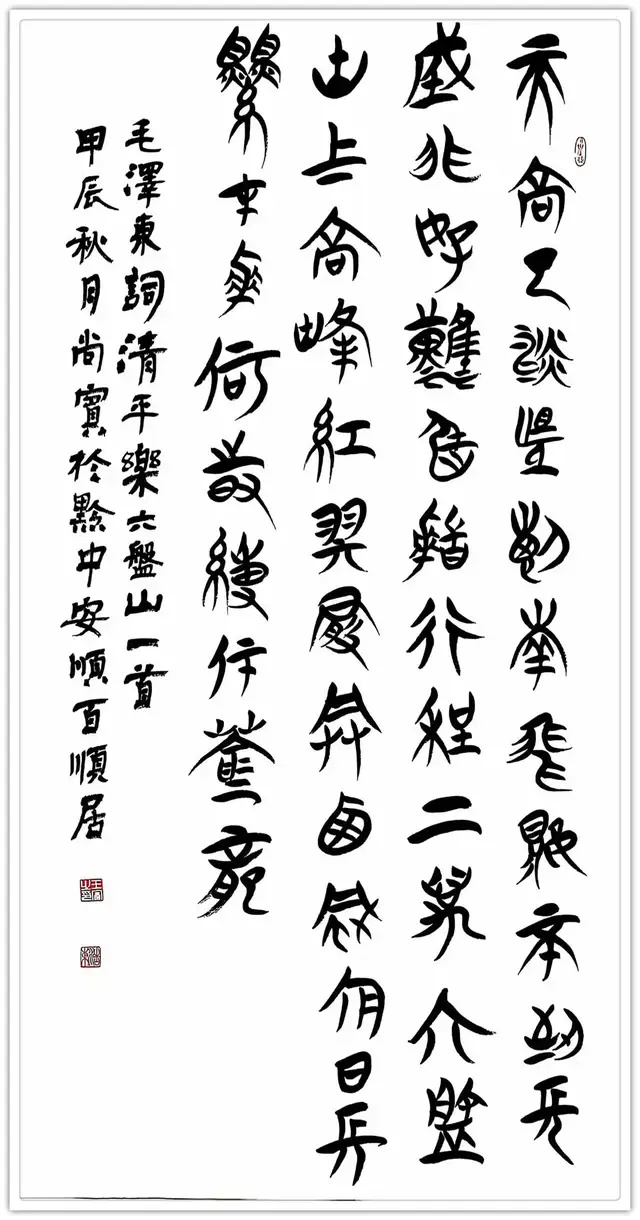 天高云淡望斷南飛雁不到長
城非好漢屈指行程二萬六盤
山上高峰紅旗漫卷西風今日長
纓在手何時縛住蒼龍
毛澤東詞清平樂六盤山一首
甲辰秋月尚實於黔中安順百順居